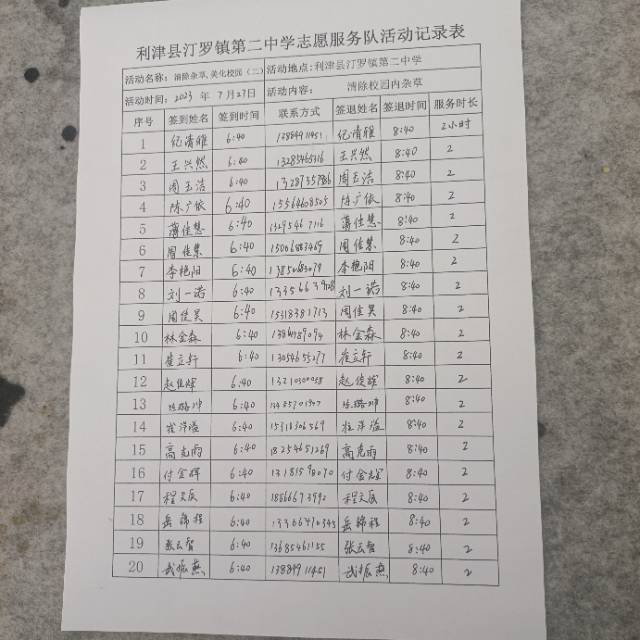 利津县汀罗镇第二中学志愿服务队活动记录表
活动名称：清除杂草,美化校园（二） 活动地点：利津县汀罗镇第二中学
活动时间：2023 年 7月27日 活动内容： 清除校园内杂草
序号 签到姓名 签到时间 联系方式 签退姓名 签退时间 服务时长
1 纪清雅 6:40 纪清雅 8:40 2小时
2 王兴然 6:40 13285465316 王兴然 8:40 2
3 周玉洁 6:40 周玉洁 8:40 2
4 陈广依 6:40 15564608505 陈广依 8:40 2
5 蒲佳慧 6:40 蒲佳慧 8:40 2
6 周佳慧 6:40 周佳慧 8:40 2
7 李艳阳 6:40 李艳阳 8:40 2
8 刘一诺 6:40 刘一诺 8:40 2
9 周佳昊 6:40 15318381713 周佳昊 8:40 2
10 林金森 6:40 林金森 8:40 2
11 崔立轩 6:40 崔立轩 8:40 2
12 赵俊辉 6:40 赵俊辉 8:40 2
13 6:40 8:40 2
14 6:40 15318306569 8:40 2
15 高克雨 6:40 18254651269 高克雨 8:40 2
16 付金辉 6:40 付金辉 8:40 2
17 程文辰 6:40 程文辰 8:40 2
18 岳锦程 6:40 岳锦程 8:40 2
19 张云智 6:40 13685461155 张云智 8:40 2
20 武振燕 6:40 13889911451 武振燕 8:40 2